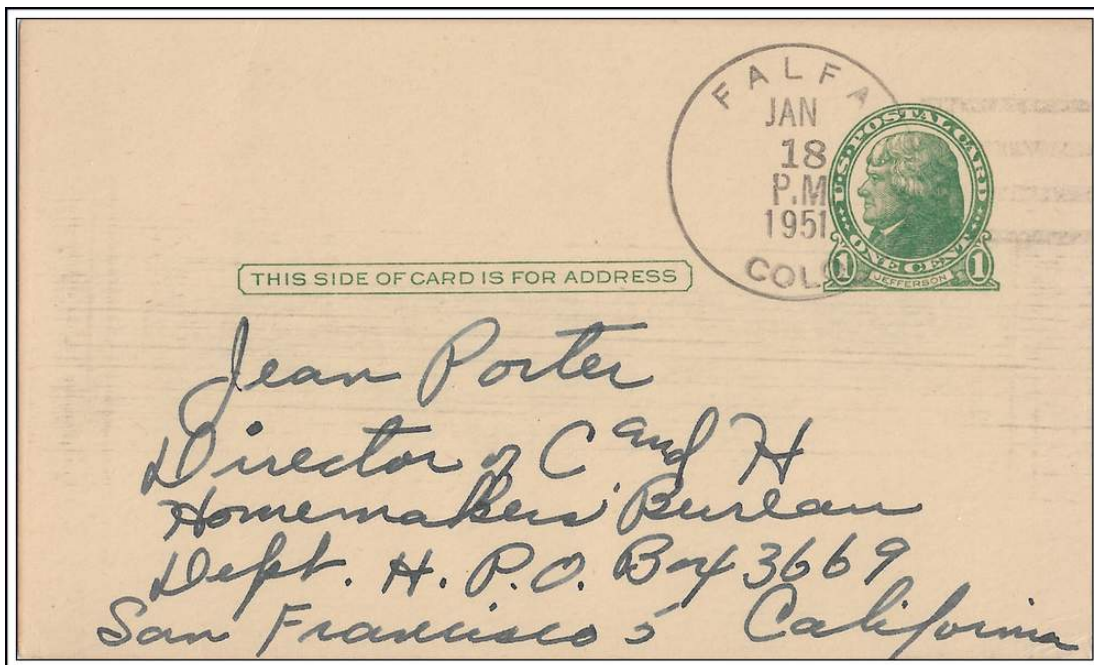 FALFA
JAN
18
P.M
1951
COLO
U.S. POSTAL CARD
ONE CENT
1 JEFFERSON 1
THIS SIDE OF CARD IS FOR ADDRESS
Jean Porter
Director of C and H
Homemakers' Bureau
Dept. H. P.O. Box 3669
San Francisco 5 California